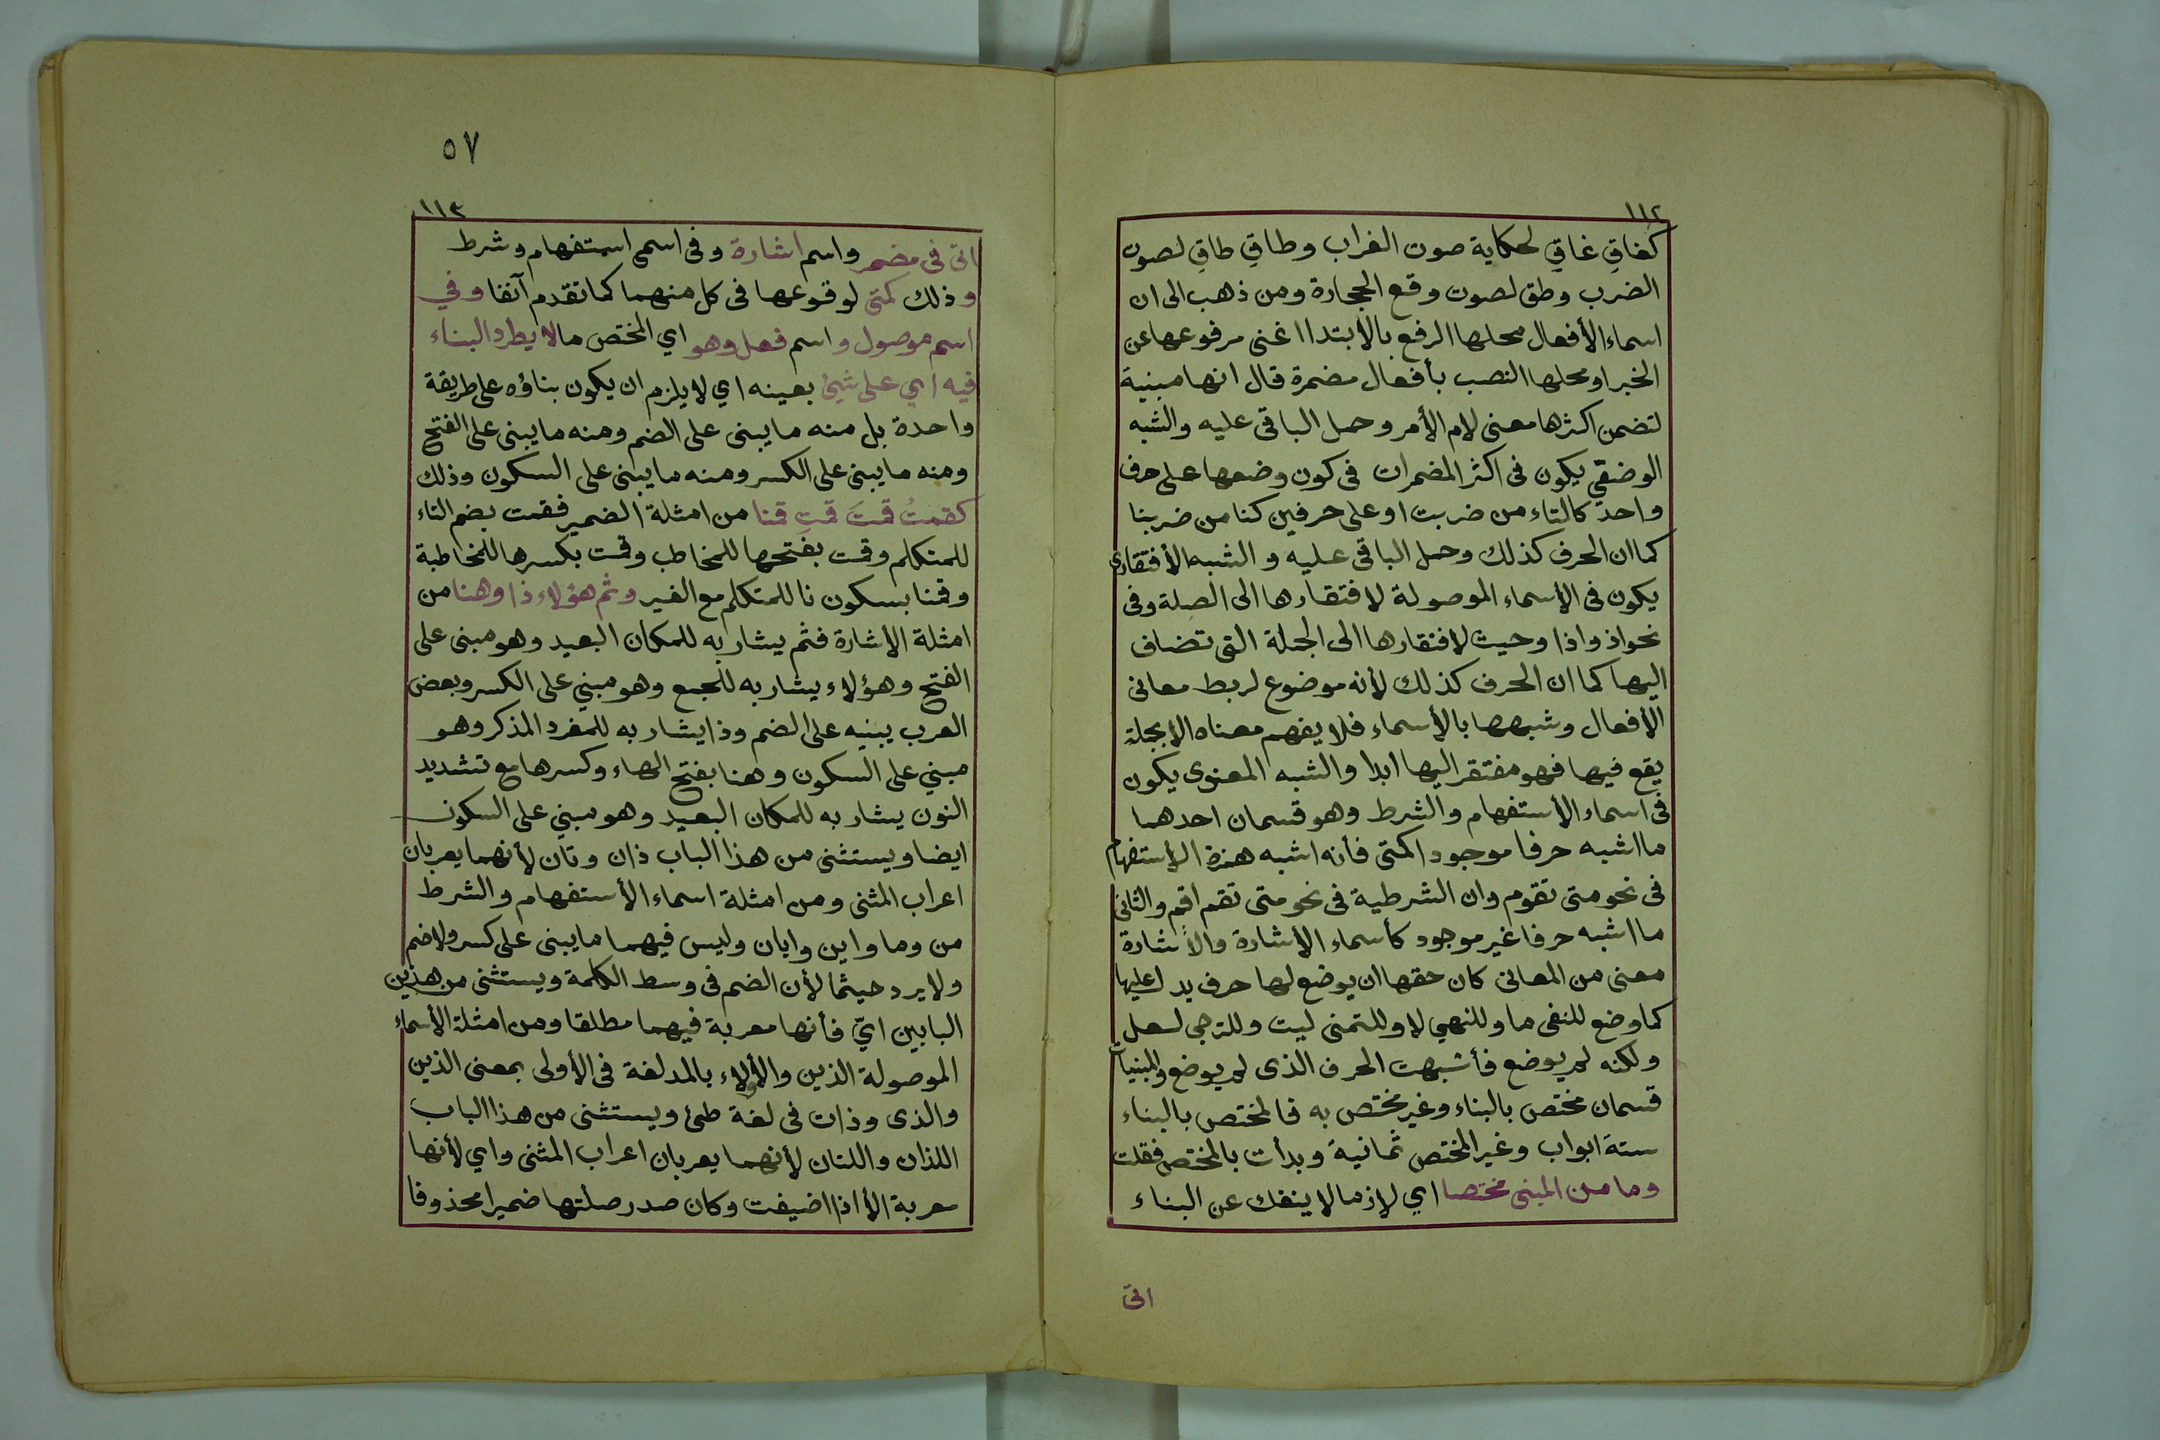 ١١٢
كغاقِ غاقِ لحكاية صوت الغراب وطاقِ طاقِ لصوت
الضرب وطق لصوت وقع الحجارة ومن ذهب الى ان
اسماء الأفعال محلها الرفع بالأبتدا اغنى مرفوعها عن
الخبر او محلها النصب بأفعال مضمرة قال انها مبنية
لتضمن اكثرها معنى لام الأمر وحمل الباقي عليه والشبه
الوضعّي يكون فى اكثر المضمرات فى كون وضعها على حرف
واحد كالتاء من ضربت او على حرفين كنا من ضربنا
كما ان الحرف كذلك وحمل الباقي عليه والشبه الأفتقارى
يكون فى الأسماء الموصولة لافتقارها الى الصلة وفى
نحو اذ واذا وحيث لافتقارها الى الجملة التى تضاف
اليها كما ان الحرف كذلك لأنه موضوع لربط معانى
الأفعال وشبهها بالأسماء فلا يفهم معناه الا بجملة
يقع فيها فهو مفتقر اليها ابدا والشبه المعنوى يكون
فى اسماء الأستفهام والشرط وهو قسمان احدهما
ما اشبه حرفا موجودا كمتى فأنه اشبه همزة الأستفهام
فى نحو متى تقوم وان الشرطية فى نحو متى تقم اقم والثانى
ما اشبه حرفا غير موجود كأسماء الأشارة والأشارة
معنى من المعانى كان حقها ان يوضع لها حرف يدل عليها
كما وضع للنفى ما وللنهي لا وللتمنى ليت وللترجى لعل
ولكنه لم يوضع فأشبهت الحرف الذى لم يوضع والمبنيات
قسمان مختص بالبناء وغير مختص به فالمختص بالبناء
ستة ابواب وغير المختص ثمانية وبدأت بالمختص فقلت
وما من المبنى مختصا اي لازما لا ينفك عن البناء
اتى
٥٧
١١٣
اتى فى مضمر واسم اشارة وفى اسمى استفهام وشرط
وذلك كمتى لوقوعها فى كل منهما كما تقدم آنفا وفي
اسم موصول واسم فعل وهو اي المختص ما لا يطرد البناء
فيه اي على شيئ بعينه اي لا يلزم ان يكون بناؤه على طريقة
واحدة بل منه ما يبنى على الضم ومنه ما يبنى على الفتح
ومنه ما يبنى على الكسر ومنه ما يبنى على السكون وذلك
كقمتُ قمتَ قمتِ قمنا من امثلة الضمير فقمت بضم التاء
للمتكلم وقمت بفتحها للمخاطب وقمت بكسرها للمخاطبة
وقمنا بسكون نا للمتكلم مع الغير وثم هؤلاء ذا وهنا من
امثلة الأشارة فثم يشار به للمكان البعيد وهو مبنى على
الفتح وهؤلاء يشار به للجمع وهو مبني على الكسر وبعض
العرب يبنيه على الضم وذا يشار به للمفرد المذكر وهو
مبني على السكون وهنا بفتح الهاء وكسرها مع تشديد
النون يشار به للمكان البعيد وهو مبني على السكون
ايضا ويستثنى من هذا الباب ذان وتان لأنهما يعربان
اعراب المثنى ومن امثلة اسماء الأستفهام والشرط
من وما واين وايان وليس فيهما ما يبنى على كسر ولا ضم
ولا يرد حيثما لأن الضم فى وسط الكلمة ويستثنى من هذين
البابين ايّ فأنها معربة فيهما مطلقا ومن امثلة الأسماء
الموصولة الذين والألاء بالمد لغة فى الأولى بمعنى الذين
والذى وذات فى لغة طئ ويستثنى من هذا الباب
اللذان واللتان لأنهما يعربان اعراب المثنى واي لأنها
معربة الأ اذا اضيفت وكان صدر صلتها ضميرا محذوفا